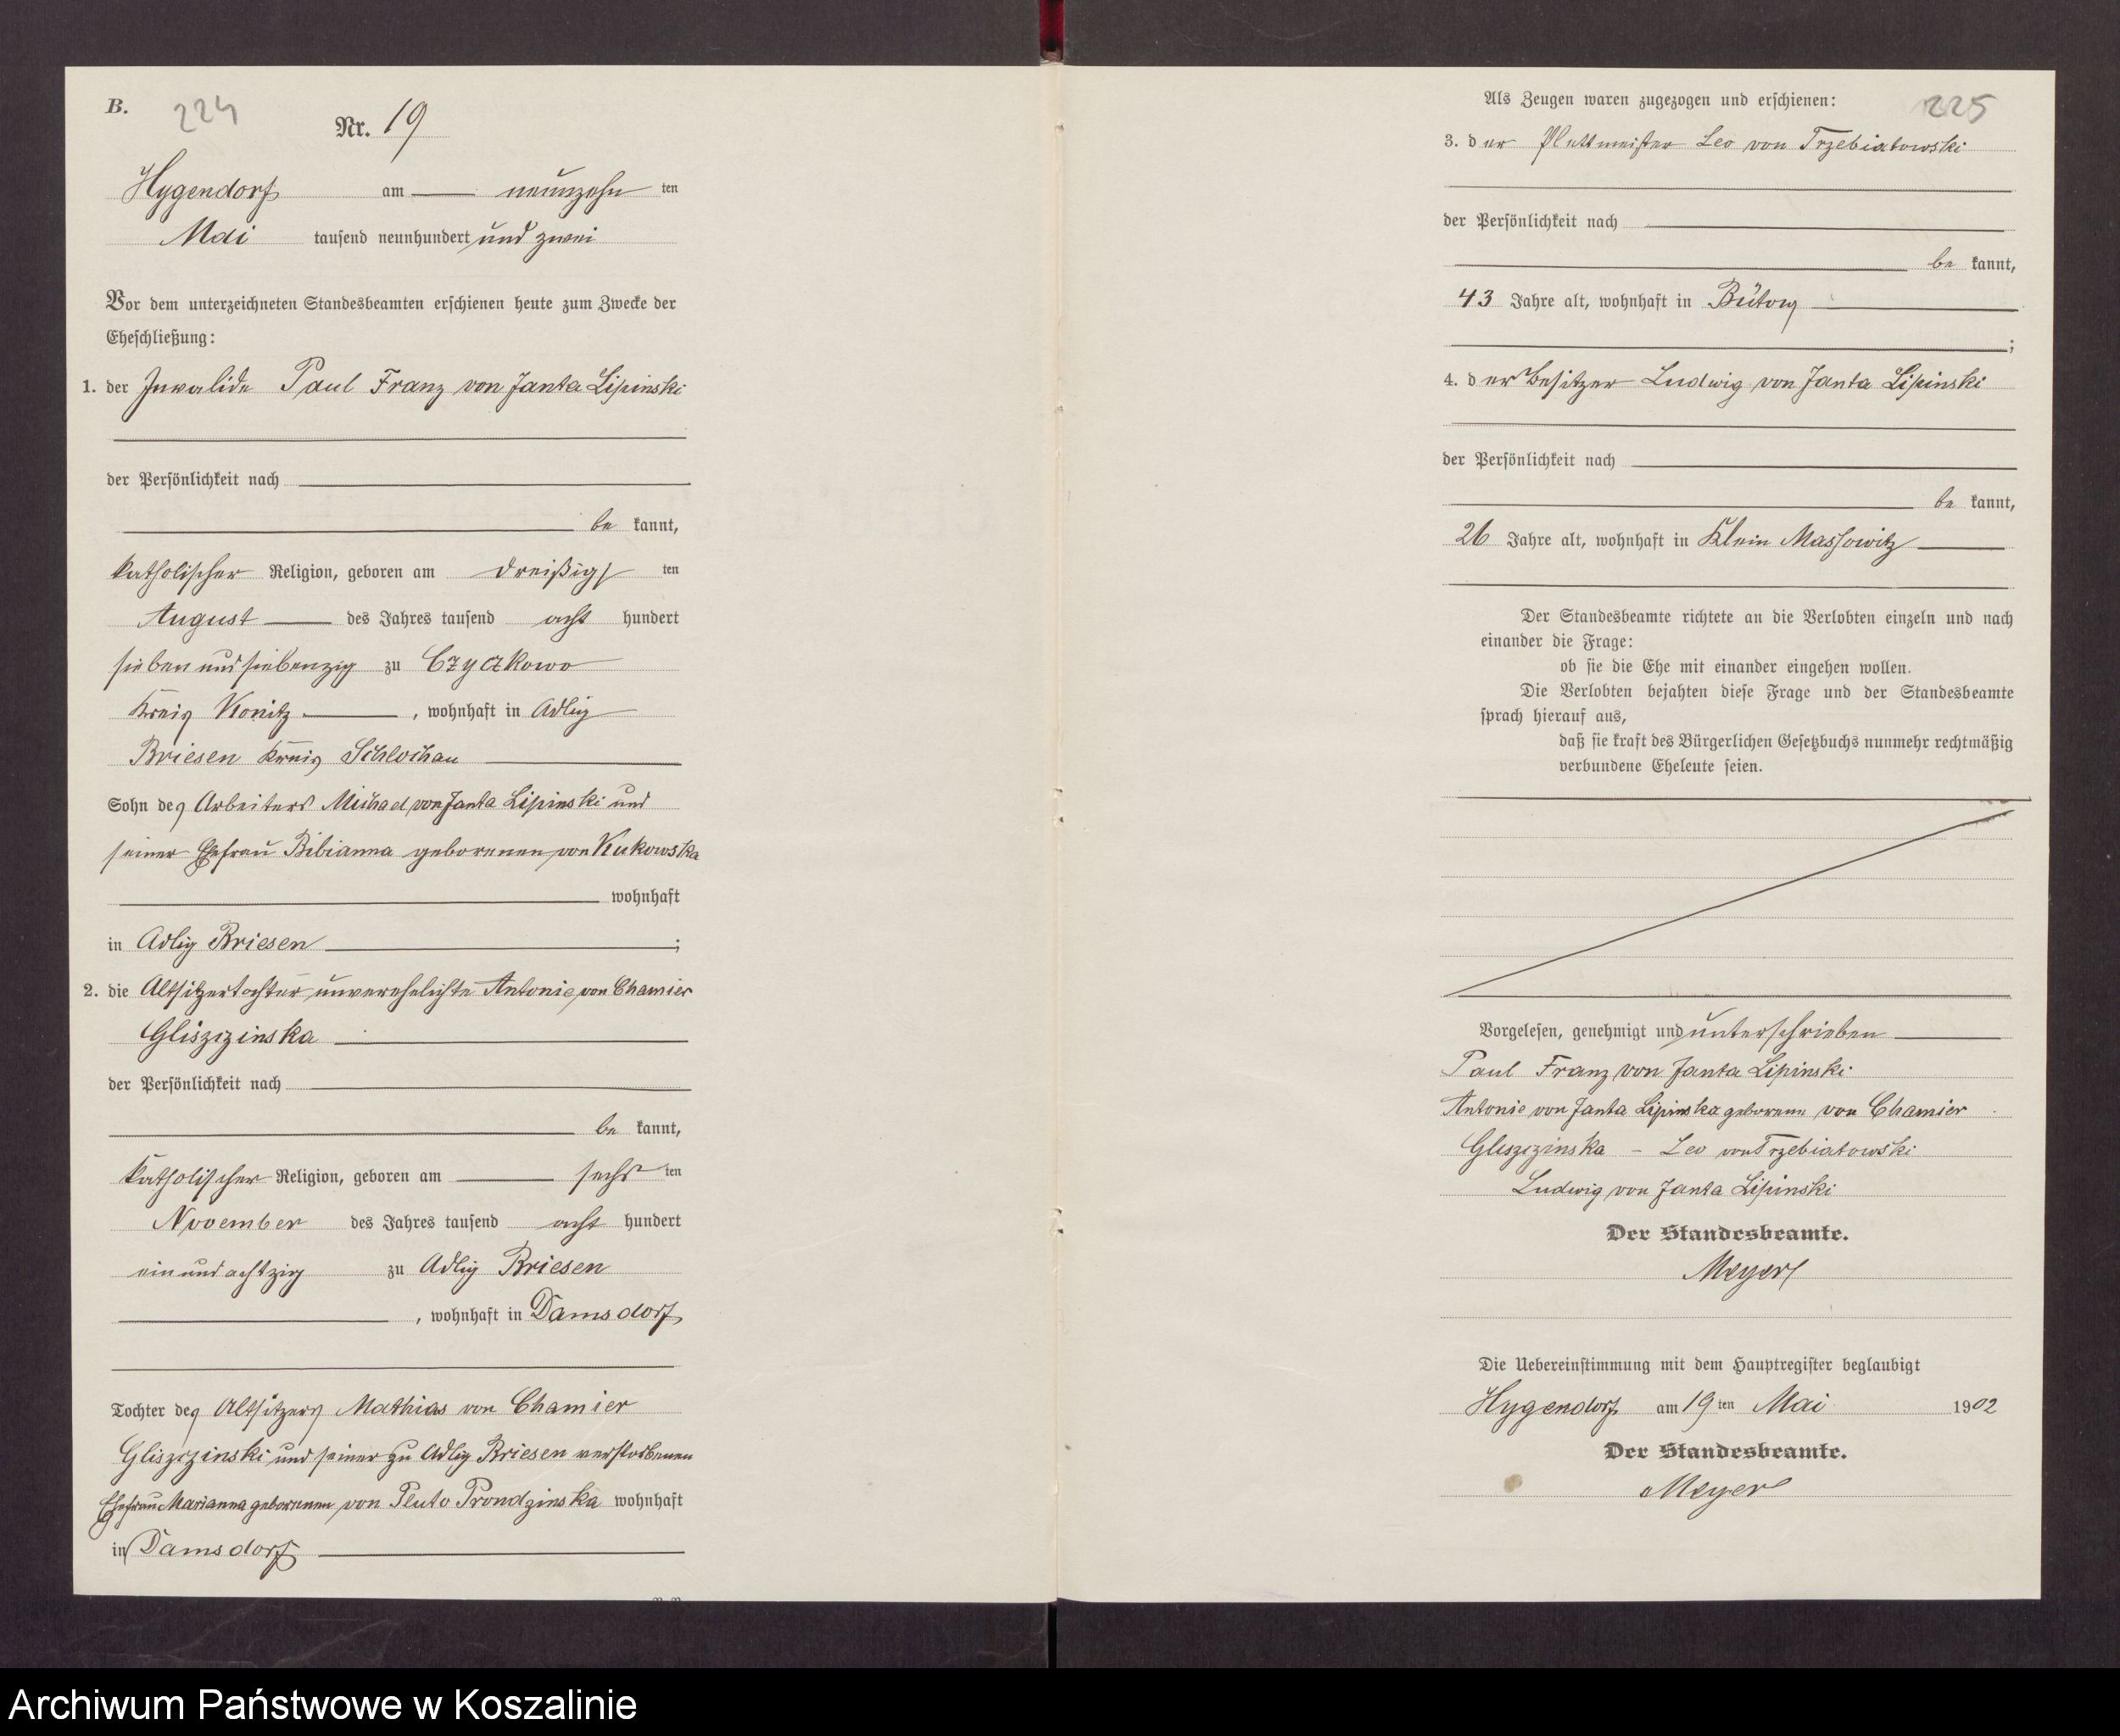 B.
224
Nr. 19
Hygendorf am neunzehn ten
Mai tausend neunhundert und zwei
Vor dem unterzeichneten Standesbeamten erschienen heute zum Zwecke der
Eheschließung:
1. der Invalide Paul Franz von Janta Lipinski
der Persönlichkeit nach
be kannt,
katholischer Religion, geboren am dreißigs ten
August des Jahres tausend acht hundert
sieben und siebenzig zu Czyczkowo
Kreis Konitz, wohnhaft in Adlig
Briesen Kreis Schlochau
Sohn des Arbeiters Michael von Janta Lipinski und
seiner Ehefrau Bibianna geborenen von Kukowska
wohnhaft
in Adlig Briesen;
2. die Altsitzertochter unverehelichte Antonie von Chamier
Gliszczinska
der Persönlichkeit nach
be kannt,
katholischer Religion, geboren am sechs ten
November des Jahres tausend acht hundert
ein und achtzig zu Adlig Briesen
, wohnhaft in Damsdorf
Tochter des Altsitzers Mathias von Chamier
Gliszczinski und seiner zu Adlig Briesen verstorbenen
Ehefrau Marianna geborenen von Pluto Prondzinska wohnhaft
in Damsdorf
Als Zeugen waren zugezogen und erschienen:
225
3. der Plettmeister Leo von Trzebiatowski
der Persönlichkeit nach
be kannt,
43 Jahre alt, wohnhaft in Bütow
;
4. der Besitzer Ludwig von Janta Lipinski
der Persönlichkeit nach
be kannt,
26 Jahre alt, wohnhaft in Klein Massowitz
Der Standesbeamte richtete an die Verlobten einzeln und nach
einander die Frage:
ob sie die Ehe mit einander eingehen wollen.
Die Verlobten bejahten diese Frage und der Standesbeamte
sprach hierauf aus,
daß sie kraft des Bürgerlichen Gesetzbuchs nunmehr rechtmäßig
verbundene Eheleute seien.
Vorgelesen, genehmigt und unterschrieben
Paul Franz von Janta Lipinski.
Antonie von Janta Lipinska geborene von Chamier
Gliszczinska – Leo von Trzebiatowski
Ludwig von Janta Lipinski
Der Standesbeamte.
Meyer
Die Uebereinstimmung mit dem Hauptregister beglaubigt
Hygendorf am 19 ten Mai 1902
Der Standesbeamte.
Meyer
Archiwum Państwowe w Koszalinie